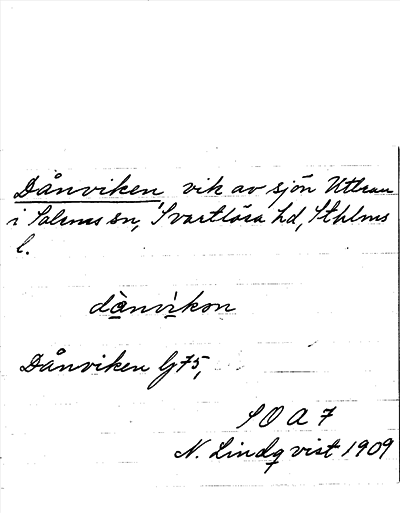 Dånviken, vik av sjön Uttran
i Salems sn, Svartlösa hd, Sthlms
l.
dànvìkon
Dånviken Gj 75,
S O A 7
N. Lindqvist 1909